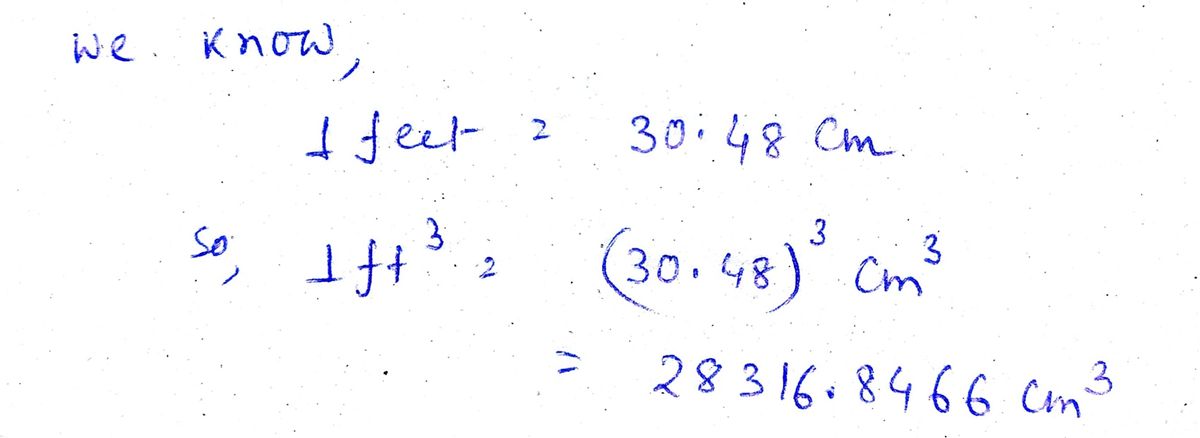 We know,
1 feet = 30.48 cm
So, 1 ft³ = (30.48)³ cm³
= 28316.8466 cm³